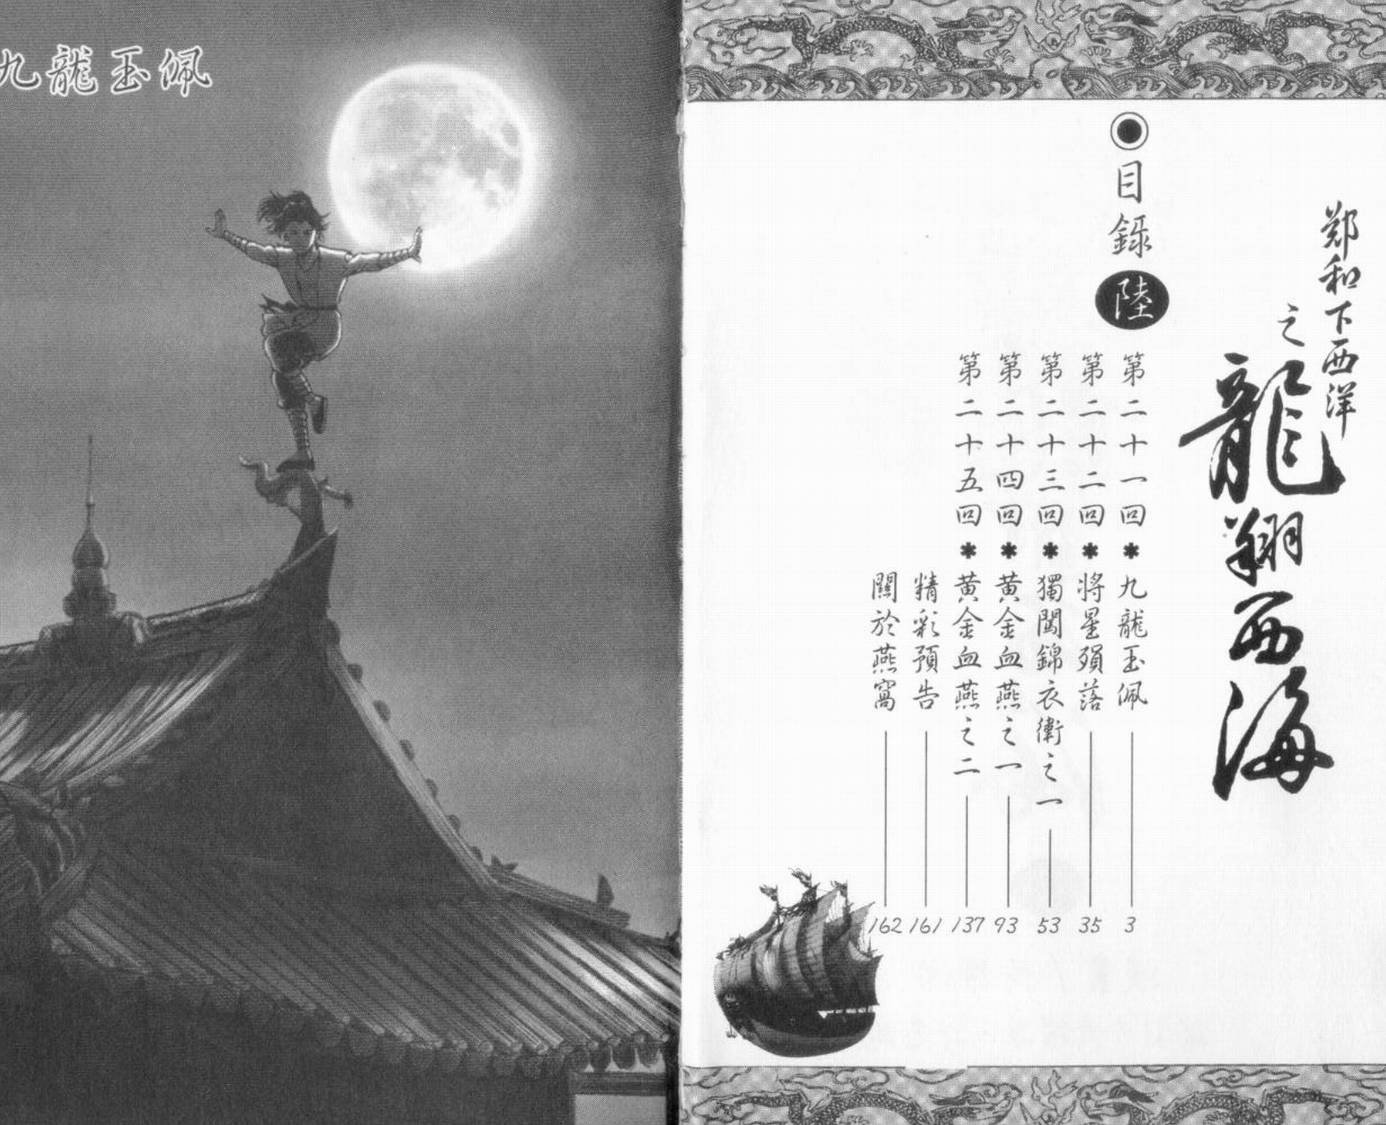 九龍玉佩
鄭和下西洋
之
龍翔西海
目錄
陸
第二十一回*九龍玉佩 3
第二十二回*將星殞落 35
第二十三回*獨闖錦衣衛之一 53
第二十四回*黃金血燕之一 93
第二十五回*黃金血燕之二 137
精彩預告 161
關於燕窩 162